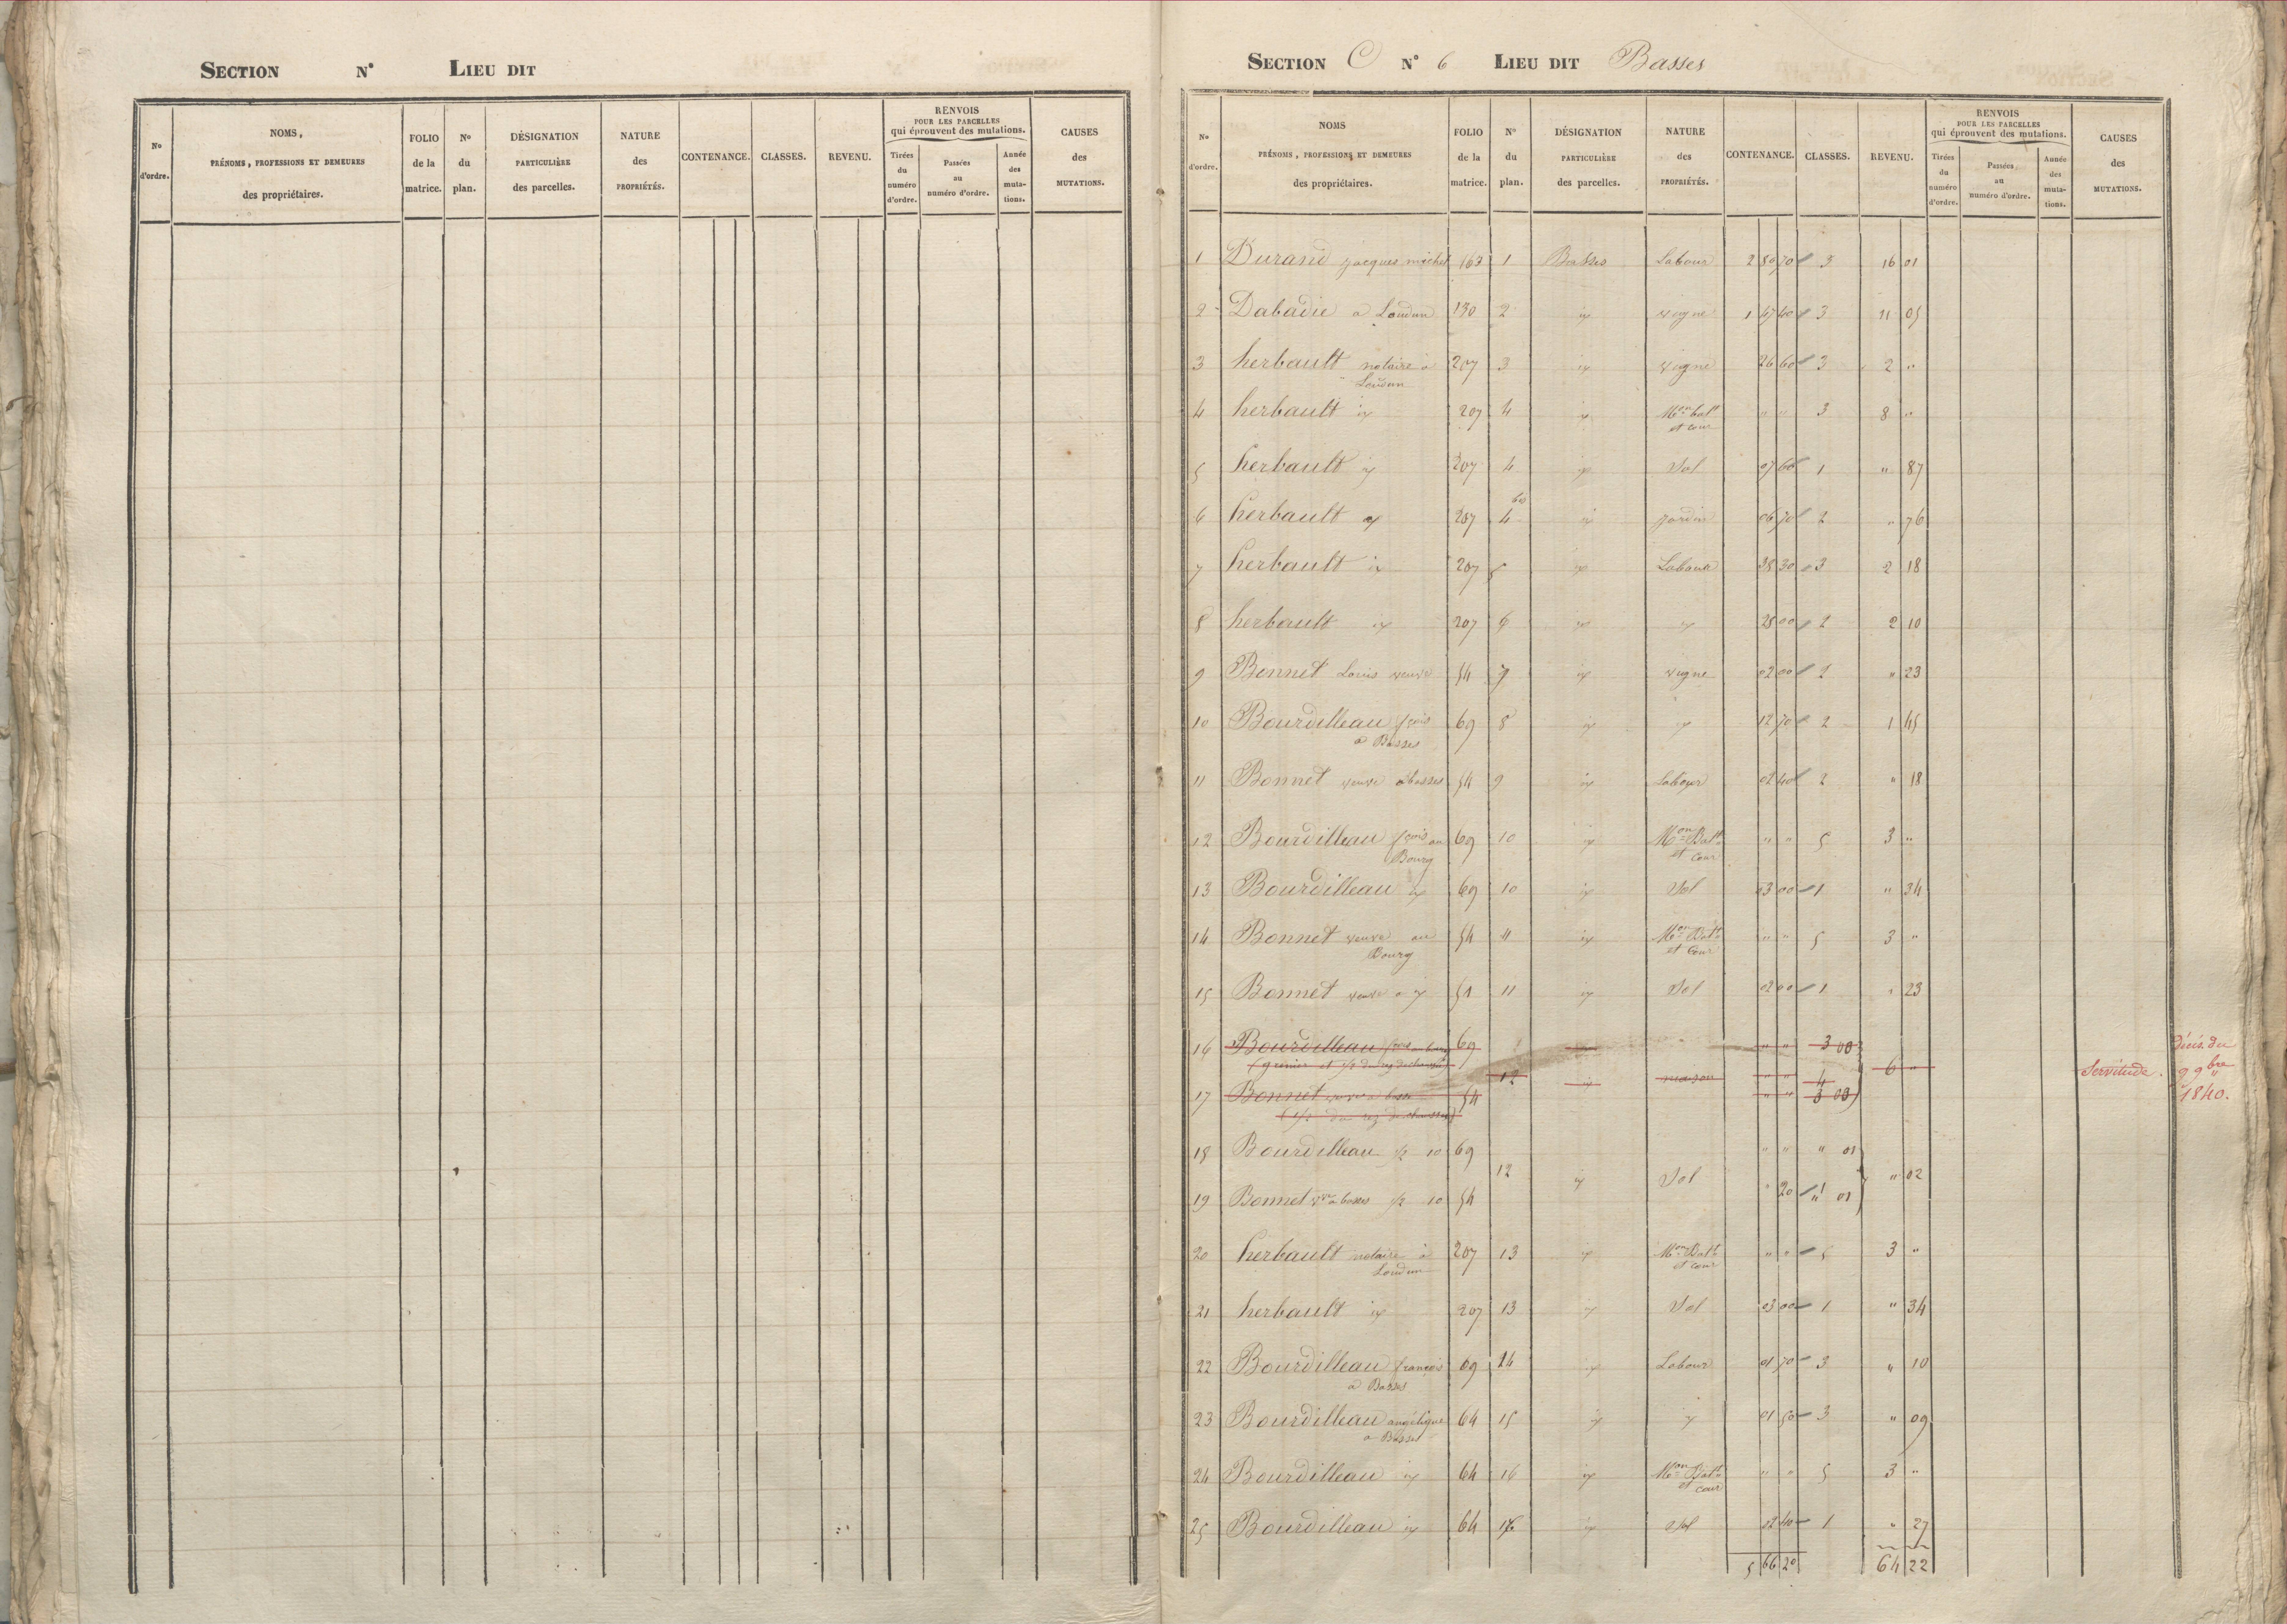 SECTION N° LIEU DIT
N° d'ordre. NOMS, PRÉNOMS, PROFESSIONS ET DEMEURES des propriétaires. FOLIO de la matrice. N° du plan. DÉSIGNATION PARTICULIÈRE des parcelles. NATURE des PROPRIÉTÉS. CONTENANCE. CLASSES. REVENU. RENVOIS POUR LES PARCELLES qui éprouvent des mutations. Tirées du numéro d'ordre. Passées au numéro d'ordre. Année des mutations. CAUSES des MUTATIONS.
SECTION C N° 6 LIEU DIT Basses
N° d'ordre. NOMS PRÉNOMS, PROFESSIONS ET DEMEURES des propriétaires. FOLIO de la matrice. N° du plan. DÉSIGNATION PARTICULIÈRE des parcelles. NATURE des PROPRIÉTÉS. CONTENANCE. CLASSES. REVENU. RENVOIS POUR LES PARCELLES qui éprouvent des mutations. Tirées du numéro d'ordre. Passées au numéro d'ordre. Année des mutations. CAUSES des MUTATIONS.
1 Durand jacques michel 167 1 Basses Labour 2 80 70 3 16 01
2 Dabadie a Loudun 130 2 id vigne 1 47 40 3 11 05
3 herbault notaire a Loudun 207 3 id vigne 26 60 3 2 "
4 herbault id 207 4 id Mon bat et cour " " 3 8 "
5 herbault id 207 4 id Sol 07 60 1 " 87
6 herbault id 207 4 bis id jardin 06 70 2 " 76
7 herbault id 207 5 id Labour 38 30 3 2 18
8 herbault id 207 6 id id 28 00 2 2 10
9 Bonnet Louis veuve 54 7 id vigne 02 00 2 " 23
10 Bourdilleau fcois a Basses 69 8 id id 12 70 2 1 45
11 Bonnet veuve a basses 54 9 id Labour 02 40 2 " 18
12 Bourdilleau fcois au Bourg 69 10 id Mon Bat et Cour " " 5 3 "
13 Bourdilleau id 69 10 id Sol 03 00 1 " 34
14 Bonnet veuve au Bourg 54 11 id Mon Bat et Cour " " 5 3 "
15 Bonnet veuve a id 54 11 id Sol 02 00 1 " 23
16 Bourdilleau fcois 69 " " 3 00
(grenier et 1/2 du rez de chaussée)
12 id maison " " 4 6 " Servitude. Décis. du 9 9bre 1840.
17 Bonnet veuve a basses 54 " " 3 00
(1/2 du rez de chaussée)
18 Bourdilleau 1/2 10 69 " " " 01
12 id Sol " 20 1 " 02
19 Bonnet vve a basses 1/2 10 54 " 01
20 herbault notaire à Loudun 207 13 id Mon Bat et cour " " 5 3 "
21 herbault id 207 13 id Sol 03 00 1 " 34
22 Bourdilleau françois a Basses 69 14 id Labour 01 70 3 " 10
23 Bourdilleau angélique a Basses 64 15 id id 01 50 3 " 09
24 Bourdilleau id 64 16 id Mon Bat et cour " " 5 3 "
25 Bourdilleau id 64 16 id Sol 02 40 1 " 27
5 66 20 64 22